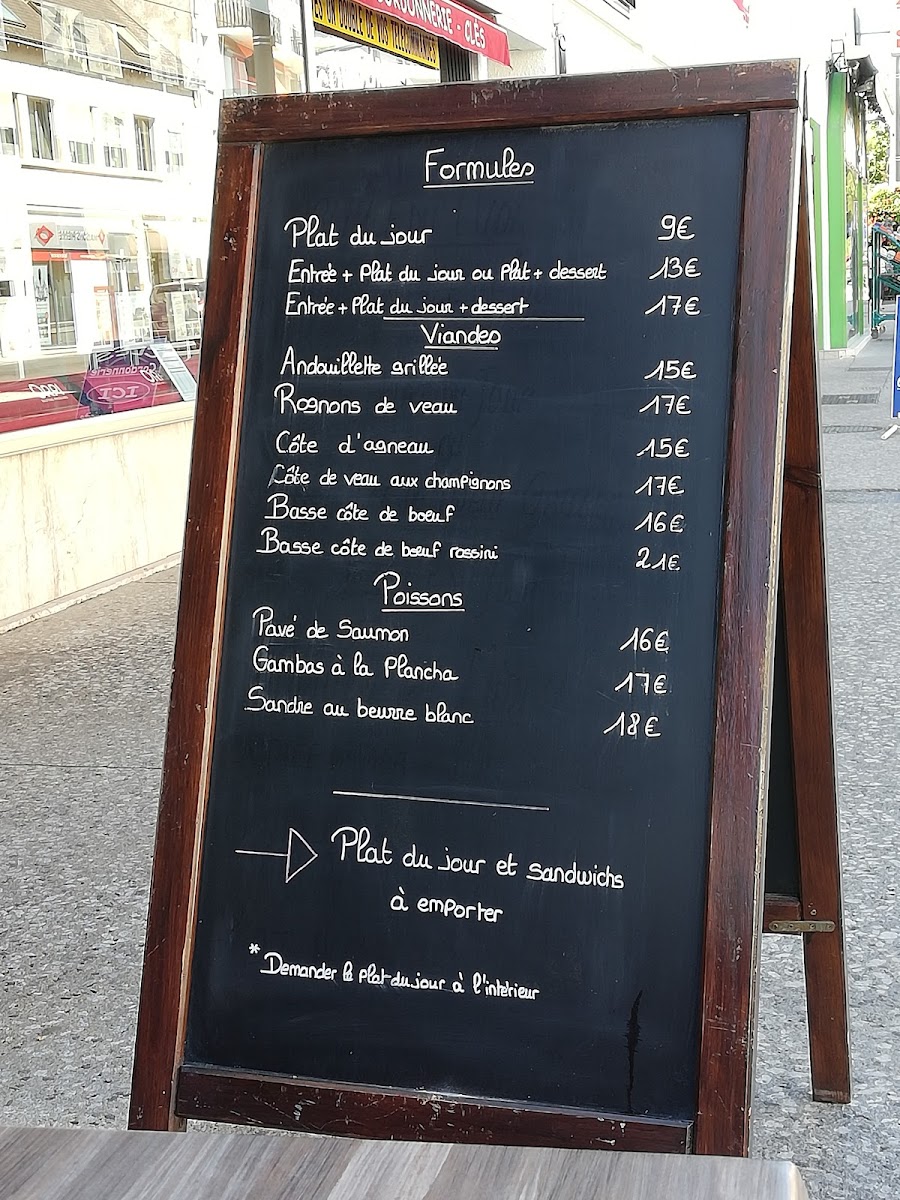 CORDONNERIE - CLÉS
Formules
Plat du jour 9€
Entrée + Plat du jour ou Plat + dessert 13€
Entrée + Plat du jour + dessert 17€
Viandes
Andouillette grillée 15€
Rognons de veau 17€
Côte d'agneau 15€
Côte de veau aux champignons 17€
Basse côte de boeuf 16€
Basse côte de bœuf rossini 21€
Poissons
Pavé de Saumon 16€
Gambas à la Plancha 17€
Sandre au beurre blanc 18€
Plat du jour et sandwichs
à emporter
* Demander le plat du jour à l'intérieur
Cordonnerie
ICI